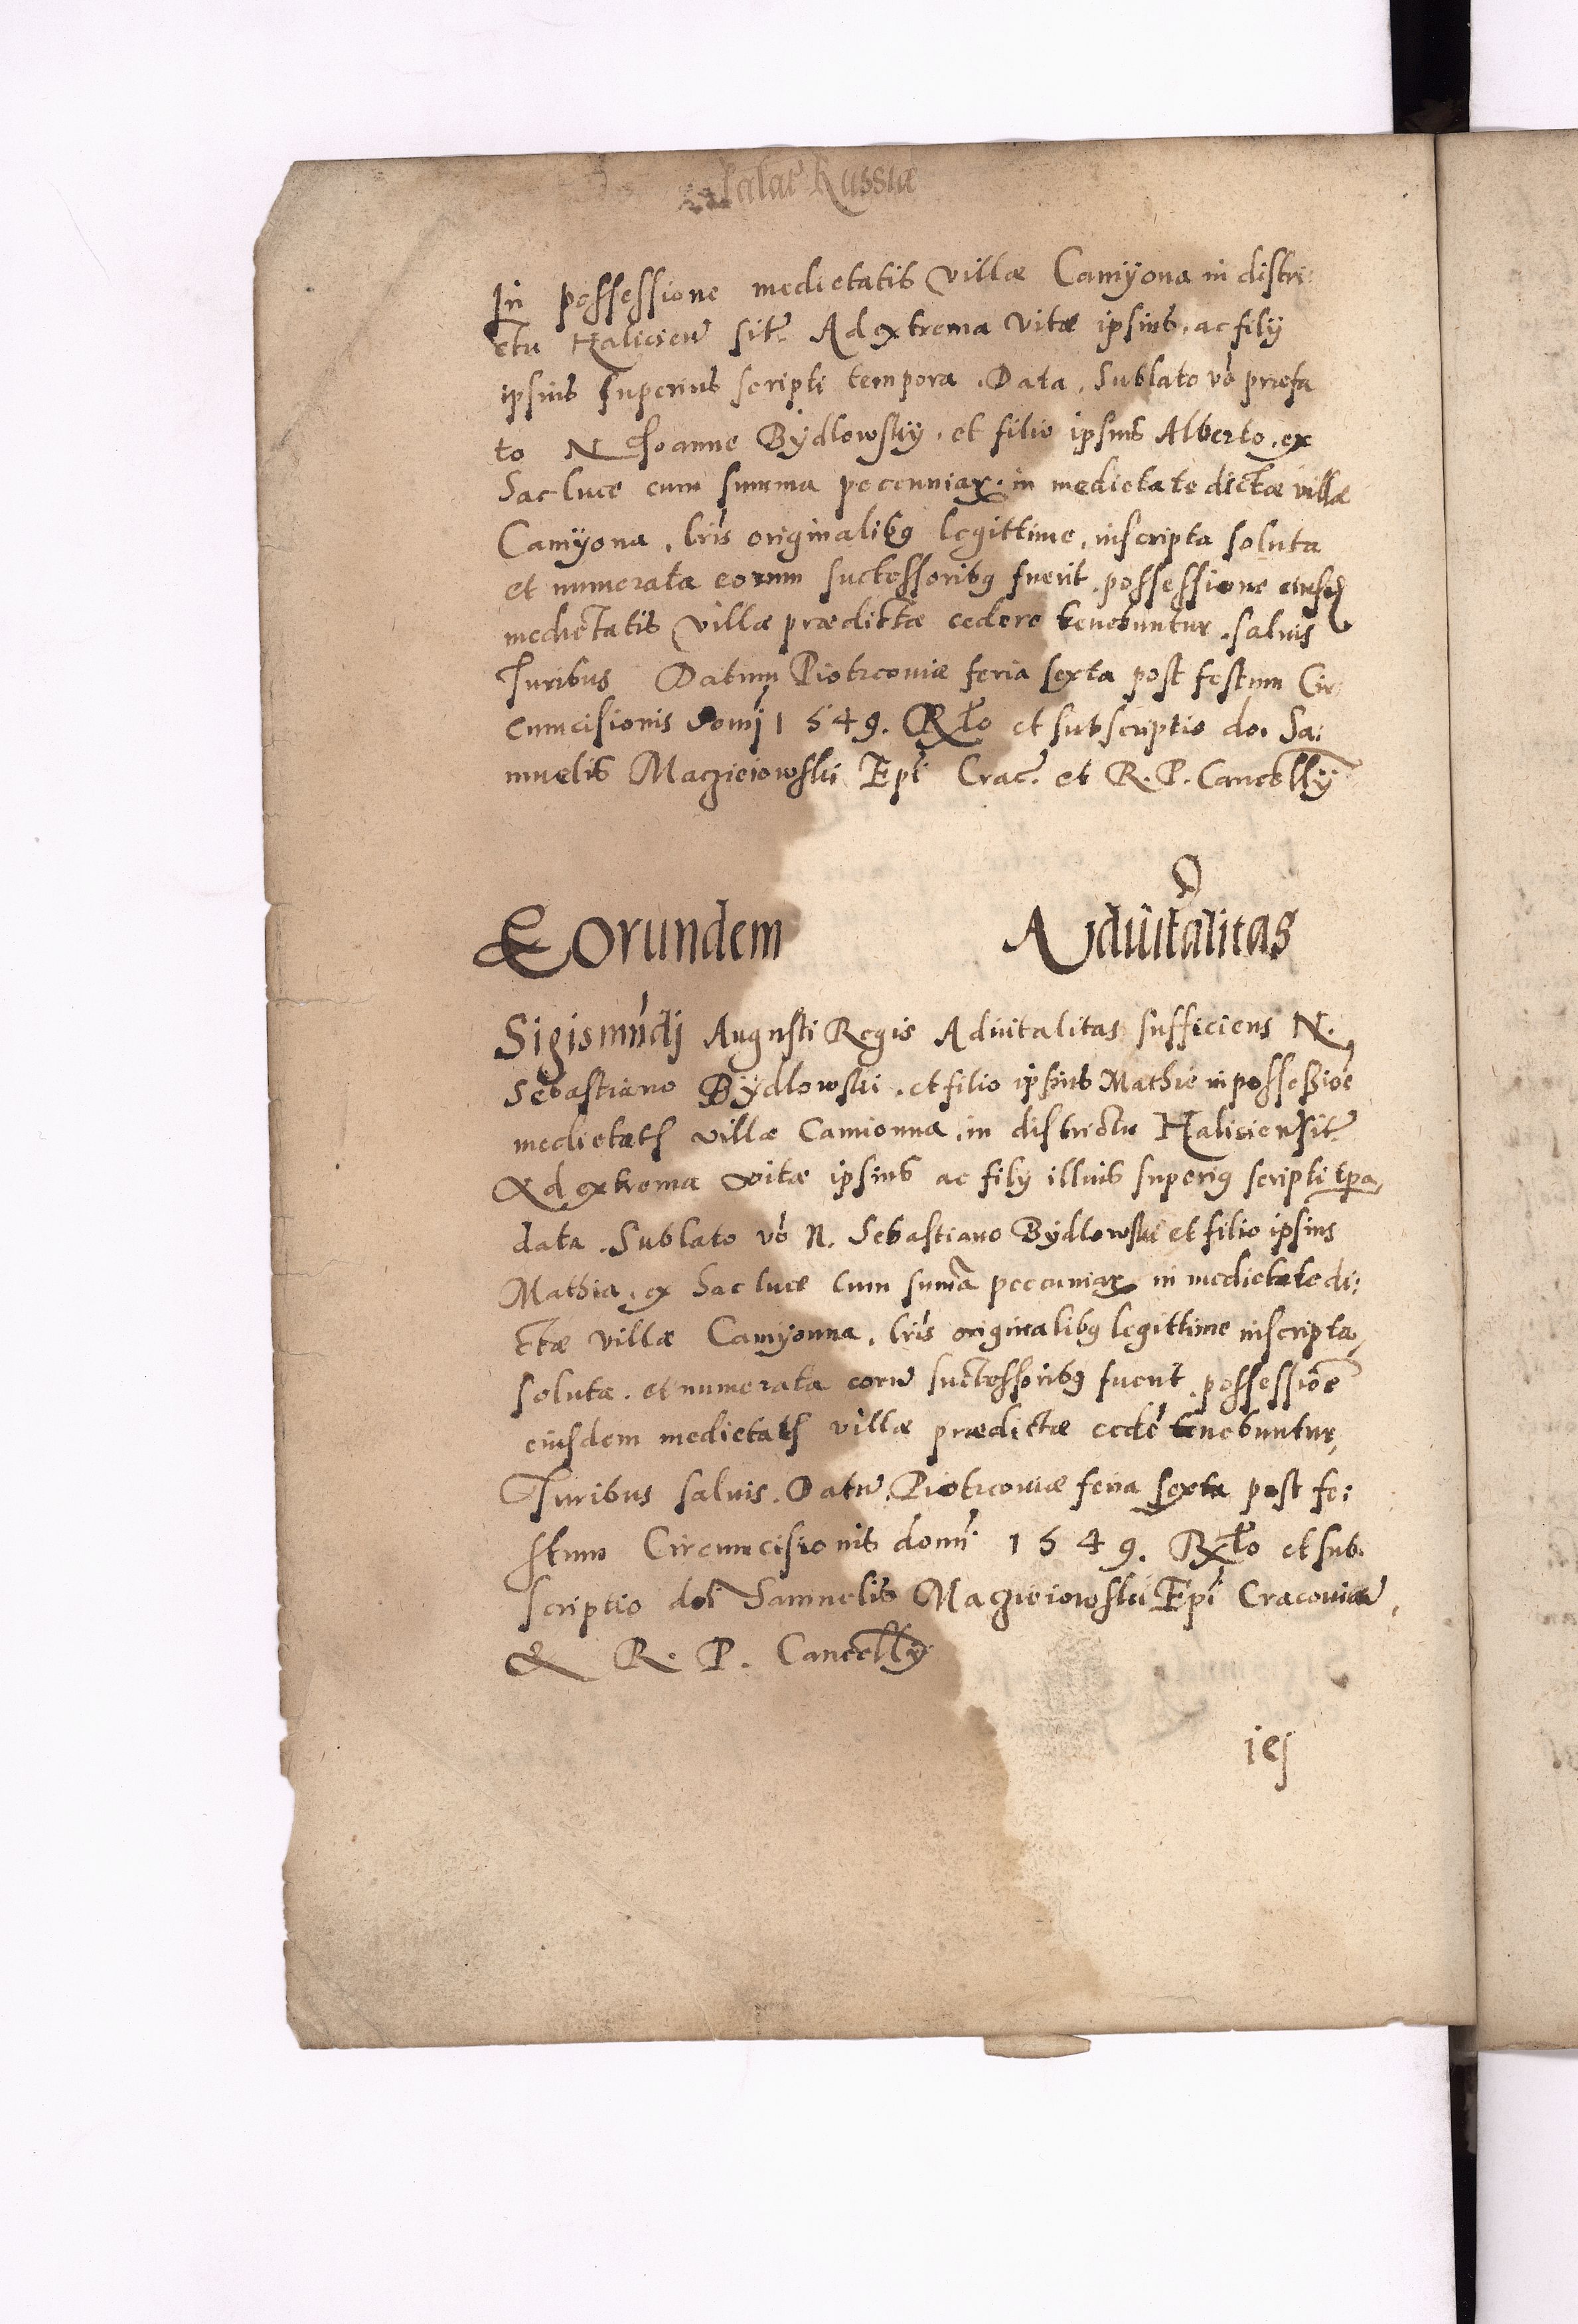 Palat Russiæ
In possessione medietatis villæ Camÿona in distri:
ctu Halicien̄ sit̄. Ad extrema vitæ ipsius, ac filÿ
ipsius superius scripti tempora. Data, Sublato v̊o præfa
to N Joanne Bÿdlowskÿ, et filio ipsius Alberto, ex
hac luce cum summa pecuniar. in medietate dictæ villæ
Camÿona, lr̄is originalibus legittime, inscripta soluta
et numerata eorum successoribus fuerit, possessione eiusd
medietatis villæ prædictæ cedere tenebuntur, saluis
Juribus Datum Piotrcouiæ feria sexta post festum Cir:
cumcisionis domj 1549. Rl̄o et subscriptio do. Sa:
muelis Maczieiowski Epi Crac. et R. P. Cancellÿ
Eorundem Aduitalitas
Sigismundj Augusti Regis Aduitalitas sufficiens N.
Sebastiano Bÿdlowski, et filio ipsius Mathie in possessioē
medietatis villæ Camionna, in districtu Halicien̄ sit̄
Ad extrema vitæ ipsius ac filÿ illius superius scripti tpa,
data. Sublato v̊o N. Sebastiano Bÿdlowski et filio ipsius
Mathia, ex hac luce cum sum̄a pecuniar in medietate di:
ctæ villæ Camÿonna, lr̄is originalibus legittime inscripta,
soluta, et numerata eorū successoribus fuerit, possessioē
eiusdem medietatis villæ prædictæ cedē tenebuntur,
Juribus saluis. Datū, Piotrcouiæ feria sexta post fe:
stum Circumcisionis domi 1549. Rl̄o et sub
scriptio doi Samuelis Maczieiowski Epi Cracouiæ,
& R. P. Cancellÿ
iej